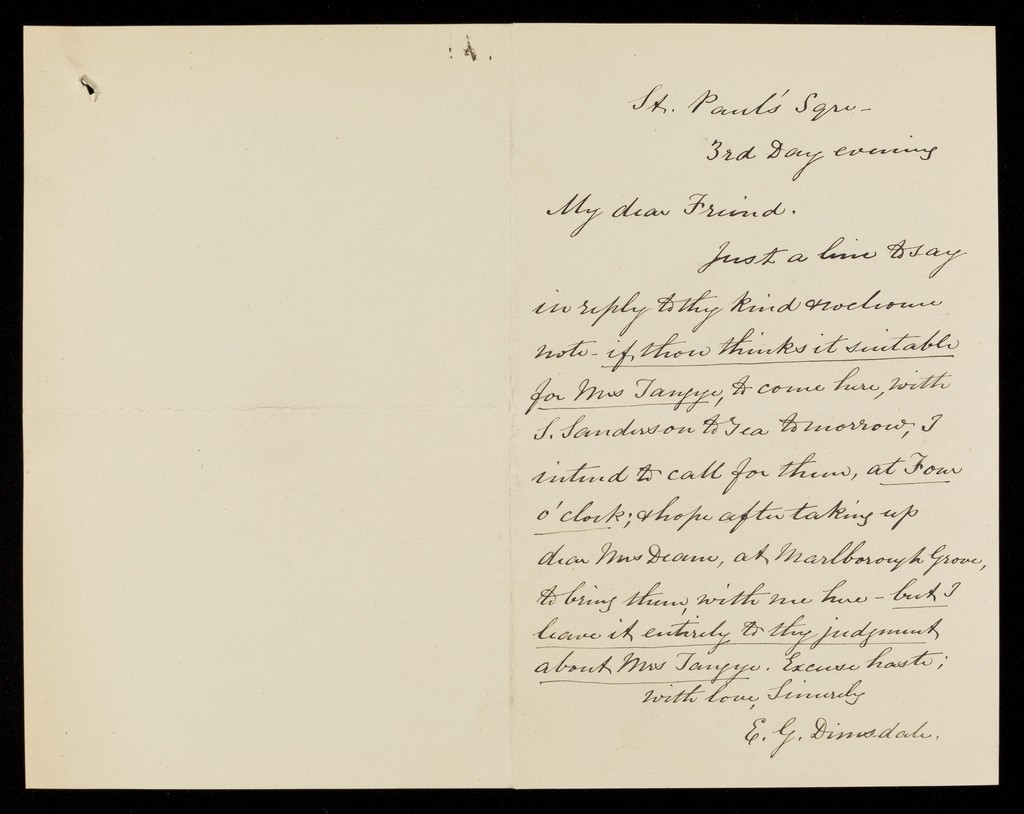 St. Paul's Sqre -
3rd Day evening
My dear Friend.
Just a line to say
in reply to thy kind & welcome
note - if thou thinks it suitable
for Mrs Tangye, to come here, with
S. Sanderson to Tea tomorrow, I
intend to call for them, at Four
o'clock; & hope after taking up
dear Mrs Deane, at Marlborough Grove,
to bring them, with me here - but I
leave it entirely to thy judgment
about Mrs Tangye. Excuse haste;
with love, Sincerely
E. G. Dimsdale.